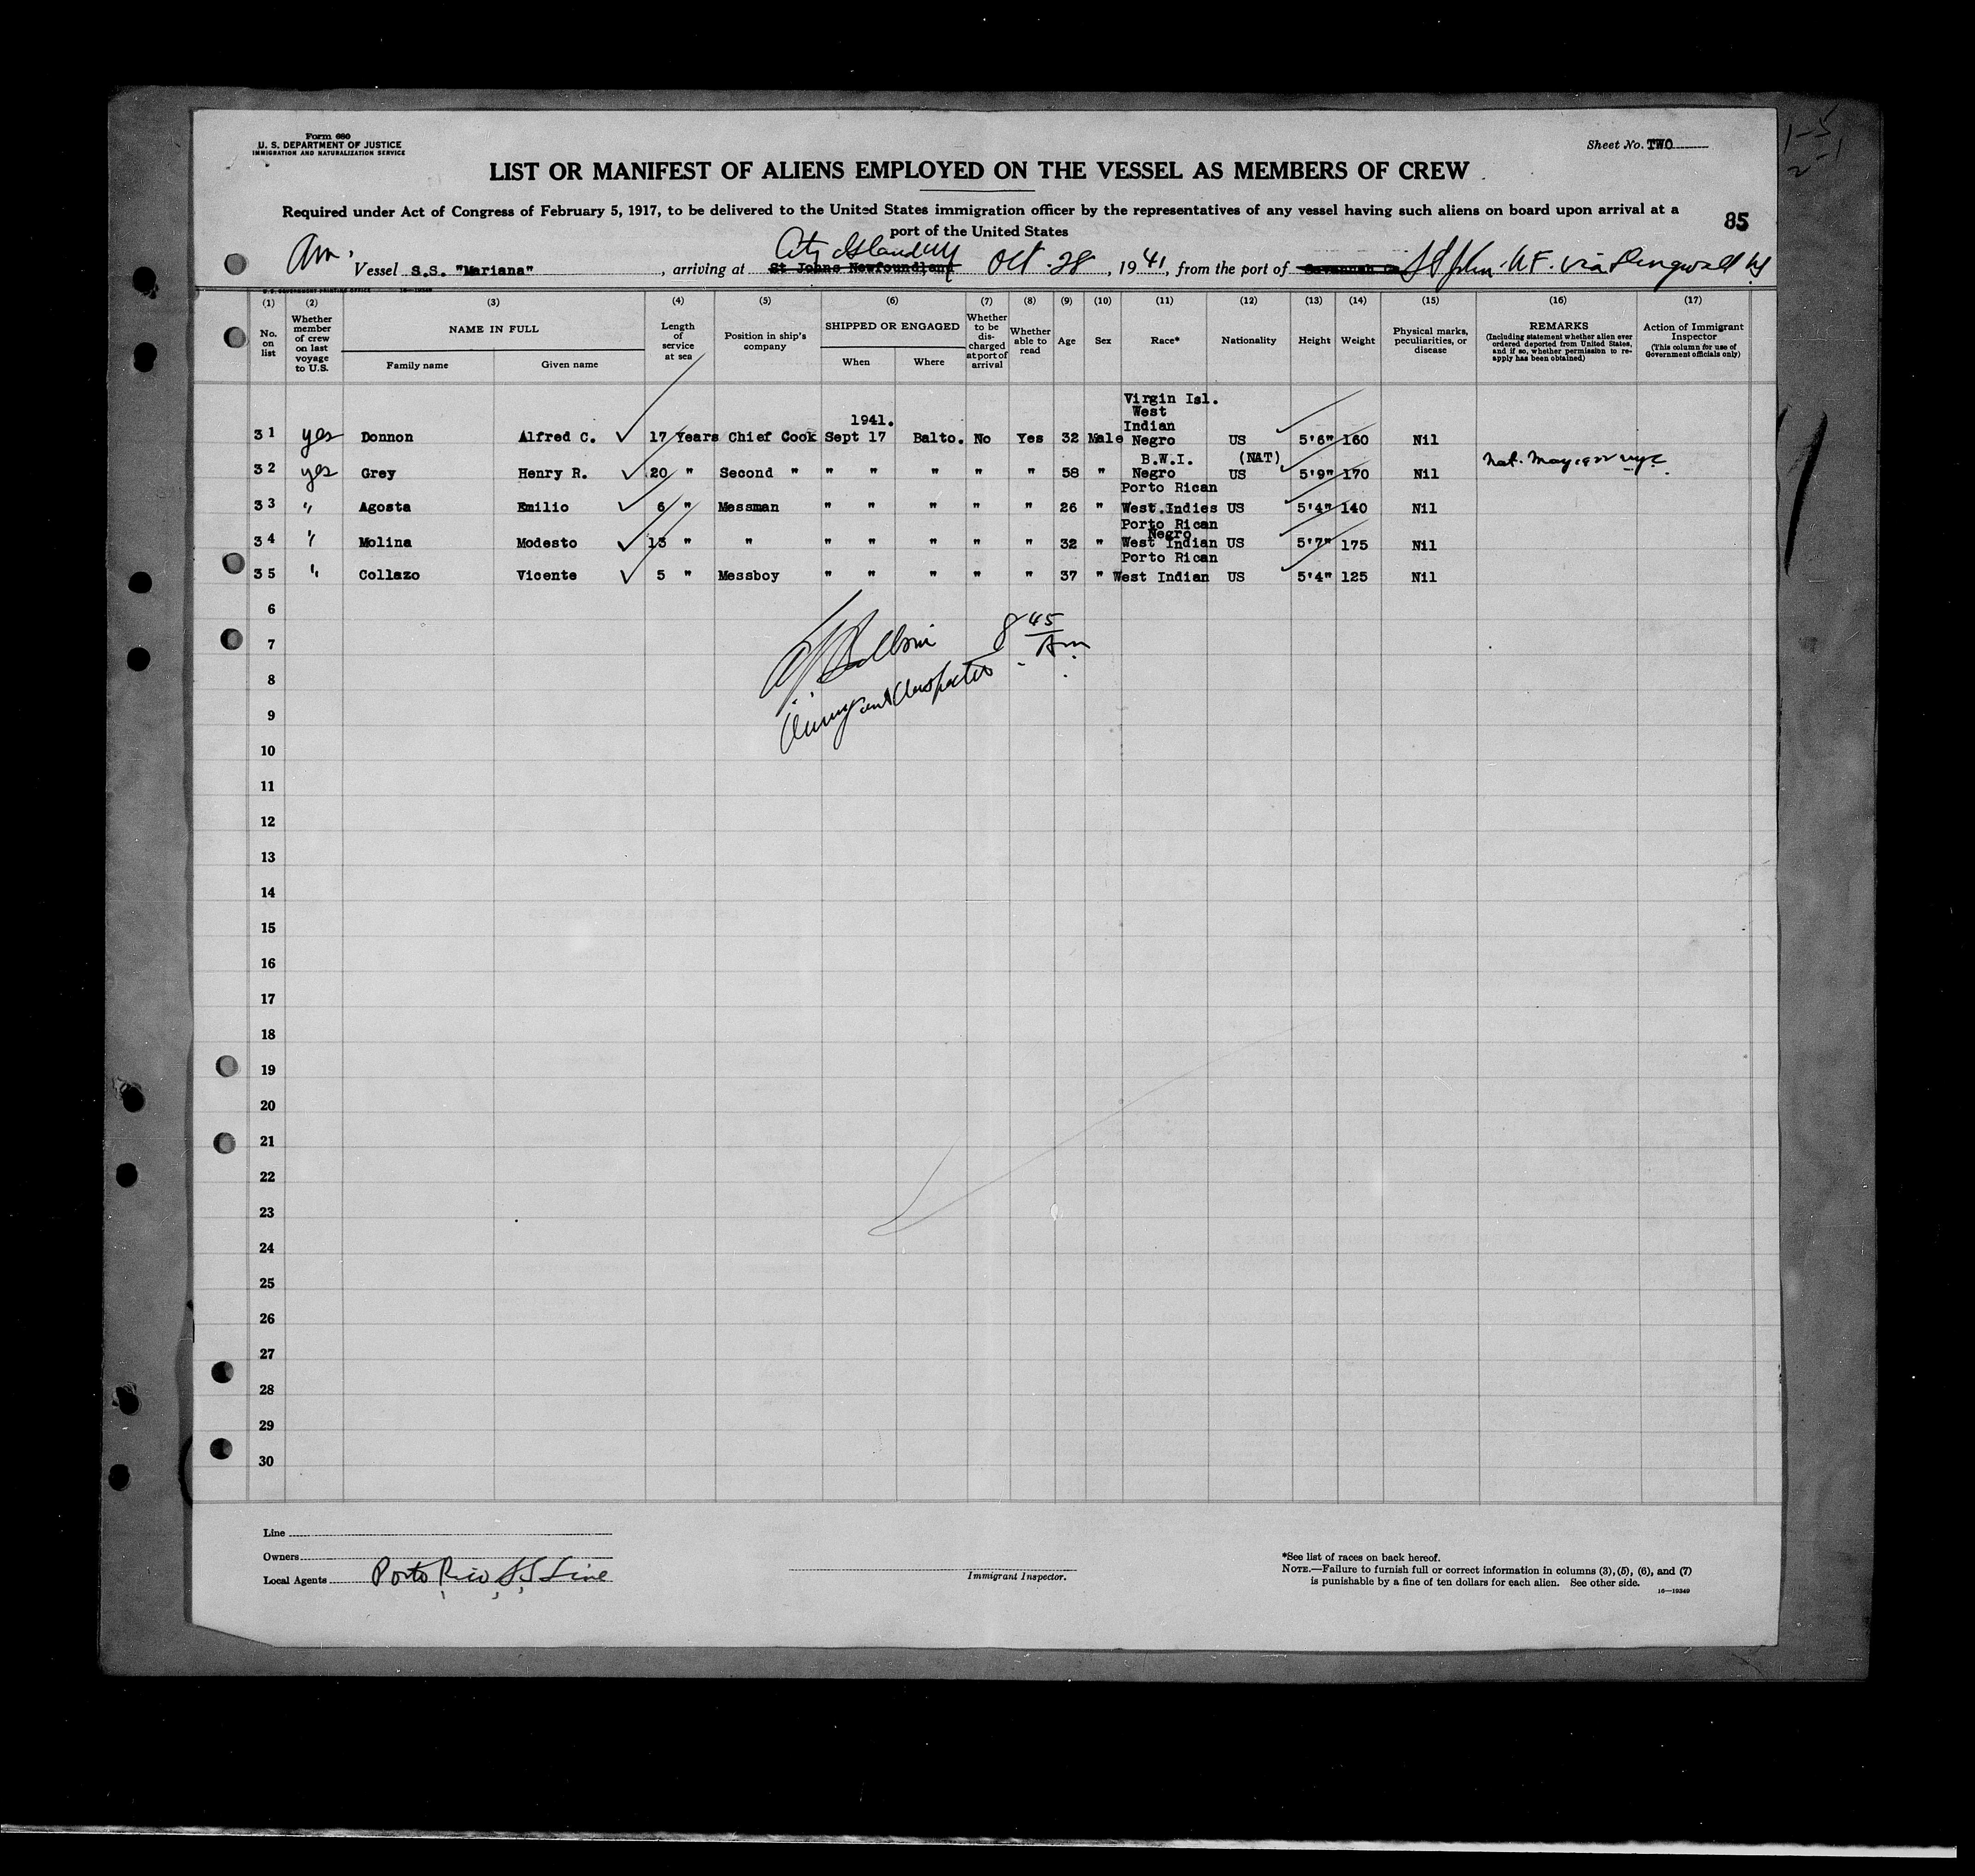 Form 680
U. S. DEPARTMENT OF JUSTICE
IMMIGRATION AND NATURALIZATION SERVICE
Sheet No. TWO
LIST OR MANIFEST OF ALIENS EMPLOYED ON THE VESSEL AS MEMBERS OF CREW
Required under Act of Congress of February 5, 1917, to be delivered to the United States immigration officer by the representatives of any vessel having such aliens on board upon arrival at a
port of the United States
85
Am. Vessel S.S. "Mariana", arriving at St Johns Newfoundland City Island NY Oct 28, 1941, from the port of St John N.F. via
(1) (2) (3) (4) (5) (6) (7) (8) (9) (10) (11) (12) (13) (14) (15) (16) (17)
No. on list
Whether member of crew on last voyage to U.S.
NAME IN FULL
Family name
Given name
Length of service at sea
Position in ship's company
SHIPPED OR ENGAGED
When
Where
Whether to be discharged at port of arrival
Whether able to read
Age
Sex
Race*
Nationality
Height
Weight
Physical marks, peculiarities, or disease
REMARKS
(Including statement whether alien ever ordered deported from United States, and if so, whether permission to reapply has been obtained)
Action of Immigrant Inspector
(This column for use of Government officials only)
31 yes Donnon Alfred C. 17 Years Chief Cook 1941. Sept 17 Balto. No Yes 32 Male Virgin Isl. West Indian Negro US 5'6" 160 Nil
32 yes Grey Henry R. 20 " Second " " " " " " 58 " B.W.I. Negro (NAT) US 5'9" 170 Nil Nat. May 1922 NYC
33 " Agosta Emilio 6 " Messman " " " " " 26 " Porto Rican West.Indies US 5'4" 140 Nil
34 " Molina Modesto 13 " " " " " " " 32 " Porto Rican Negro West Indian US 5'7" 175 Nil
35 " Collazo Vicente 5 " Messboy " " " " " 37 " Porto Rican West Indian US 5'4" 125 Nil
6
7
8
8 45 Am
Immigrant Inspector
9
10
11
12
13
14
15
16
17
18
19
20
21
22
23
24
25
26
27
28
29
30
Line
Owners
Local Agents Porto Rico SS Line
Immigrant Inspector.
*See list of races on back hereof.
NOTE.—Failure to furnish full or correct information in columns (3), (5), (6), and (7)
is punishable by a fine of ten dollars for each alien. See other side.
16—19349